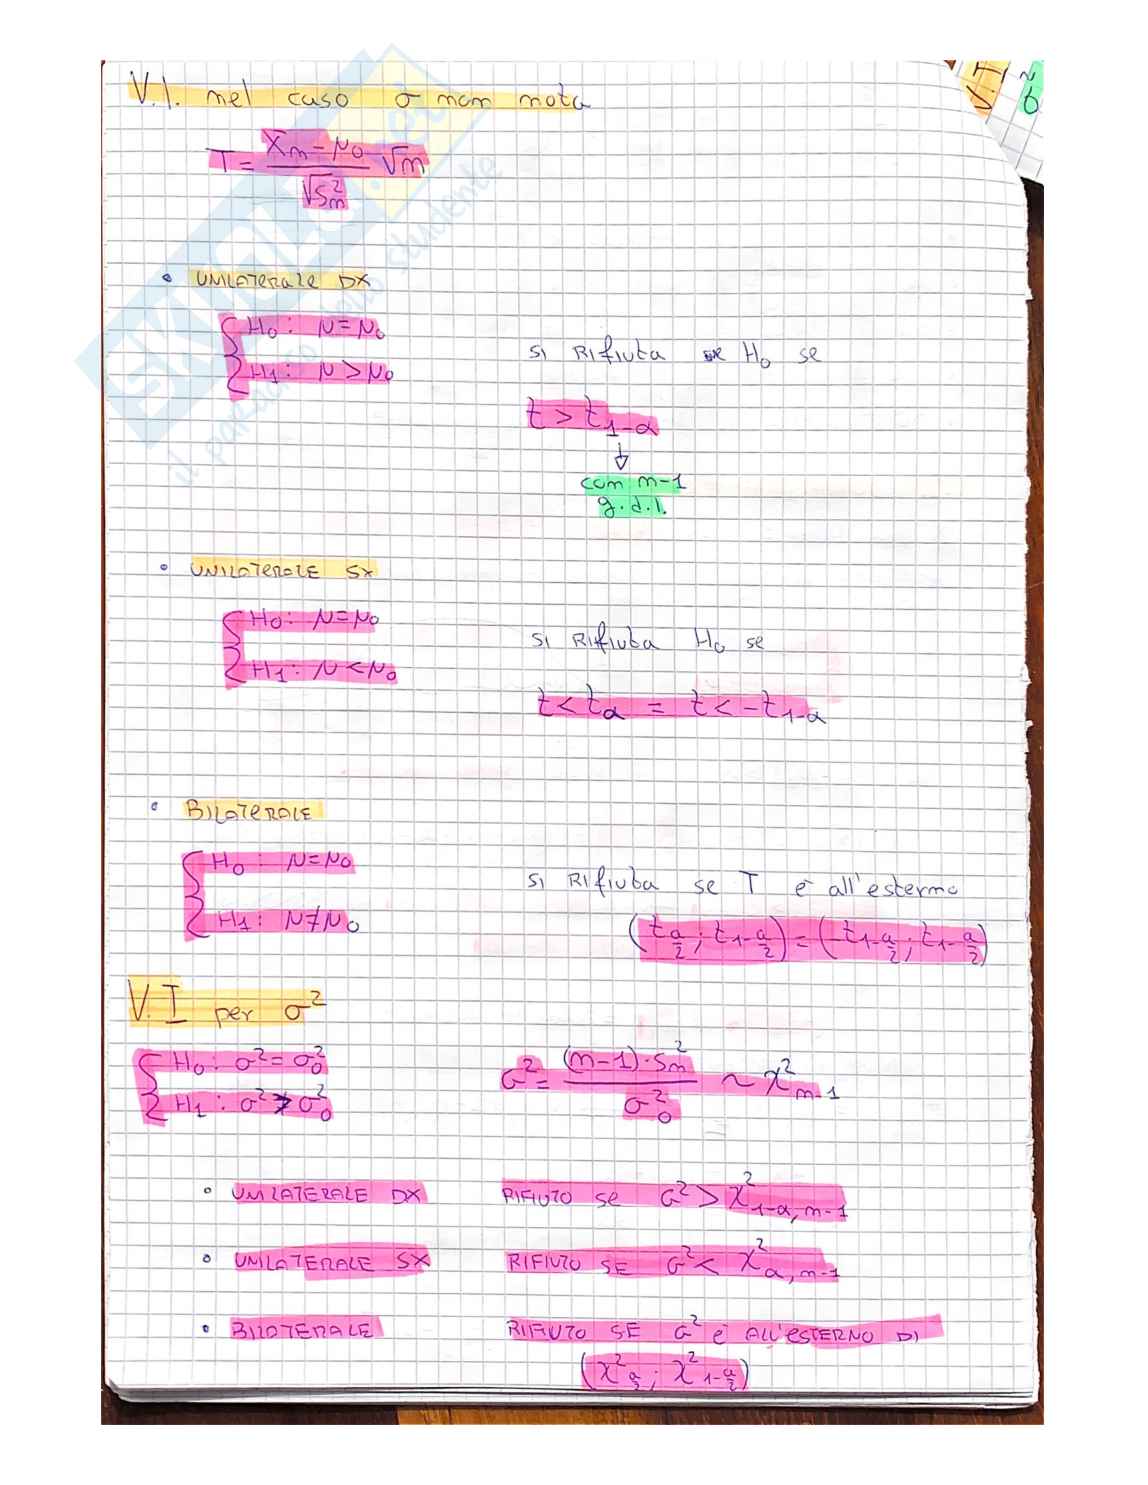 V.I. nel caso σ non nota
T = (X̄n - μ0) / √S²n · √n
• UNILATERALE DX
H0 : μ = μ0
H1 : μ > μ0
SI RIFIUTA H0 se
t > t1-α
↓
con n-1
g.d.l.
• UNILATERALE SX
H0 : μ = μ0
H1 : μ < μ0
SI RIFIUTA H0 se
t < tα = t < -t1-α
• BILATERALE
H0 : μ = μ0
H1 : μ ≠ μ0
SI RIFIUTA se T è all'esterno
(tα/2 ; t1-α/2) = (-t1-α/2 ; t1-α/2)
V.I per σ²
H0 : σ² = σ²0
H1 : σ² > σ²0
G² = (n-1)·S²n / σ²0 ~ χ²n-1
• UNILATERALE DX RIFIUTO SE G² > χ²1-α, n-1
• UNILATERALE SX RIFIUTO SE G² < χ²α, n-1
• BILATERALE RIFIUTO SE G² È ALL'ESTERNO DI
(χ²α/2 ; χ²1-α/2)
V.I
σ²
SKUOLA.net
il paradiso dello studente